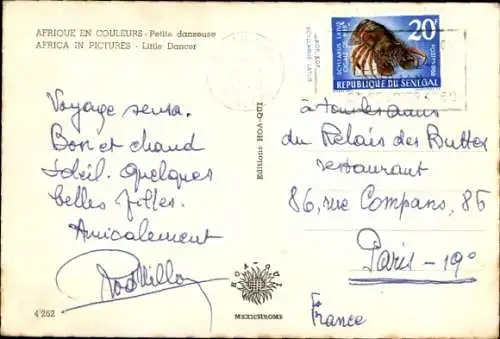 AFRIQUE EN COULEURS - Petite danseuse
AFRICA IN PICTURES - Little Dancer
Voyage sensa.
Bon et chaud
soleil. Quelques
belles filles.
Amicalement
4262
Editions HOA-QUI
HOA-QUI
MEXICHROME
20F
SCYLLARUS LATUS
REPUBLIQUE DU SENEGAL
à tous les amis
du Relais des Buttes
restaurant
86, rue Compans, 86
Paris - 19e
France